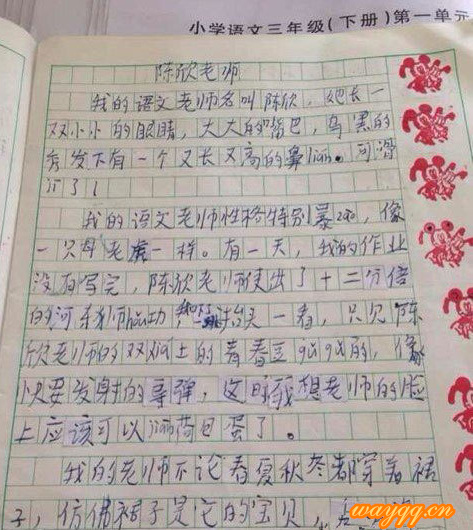 小学语文三年级(下册)第一单元
陈欣老师
我的语文老师名叫陈欣,她长一
双小小的眼睛,大大的嘴巴,乌黑的
秀发下有一个又长又高的鼻liang。可滑
ji了!
我的语文老师性格特别暴zao,像
一只母老虎一样。有一天,我的作业
没有写完,陈欣老师使出了十二分倍
的河东狮hou功,我抬头一看,只见陈
欣老师的双jia上的青春豆gugu的,像
以要发射的导弹,这时我想老师的脸
上应该可以jian荷包蛋了。
我的老师不论春夏秋冬都穿着裙
子,仿佛裙子是它的宝贝,
waygq.cn